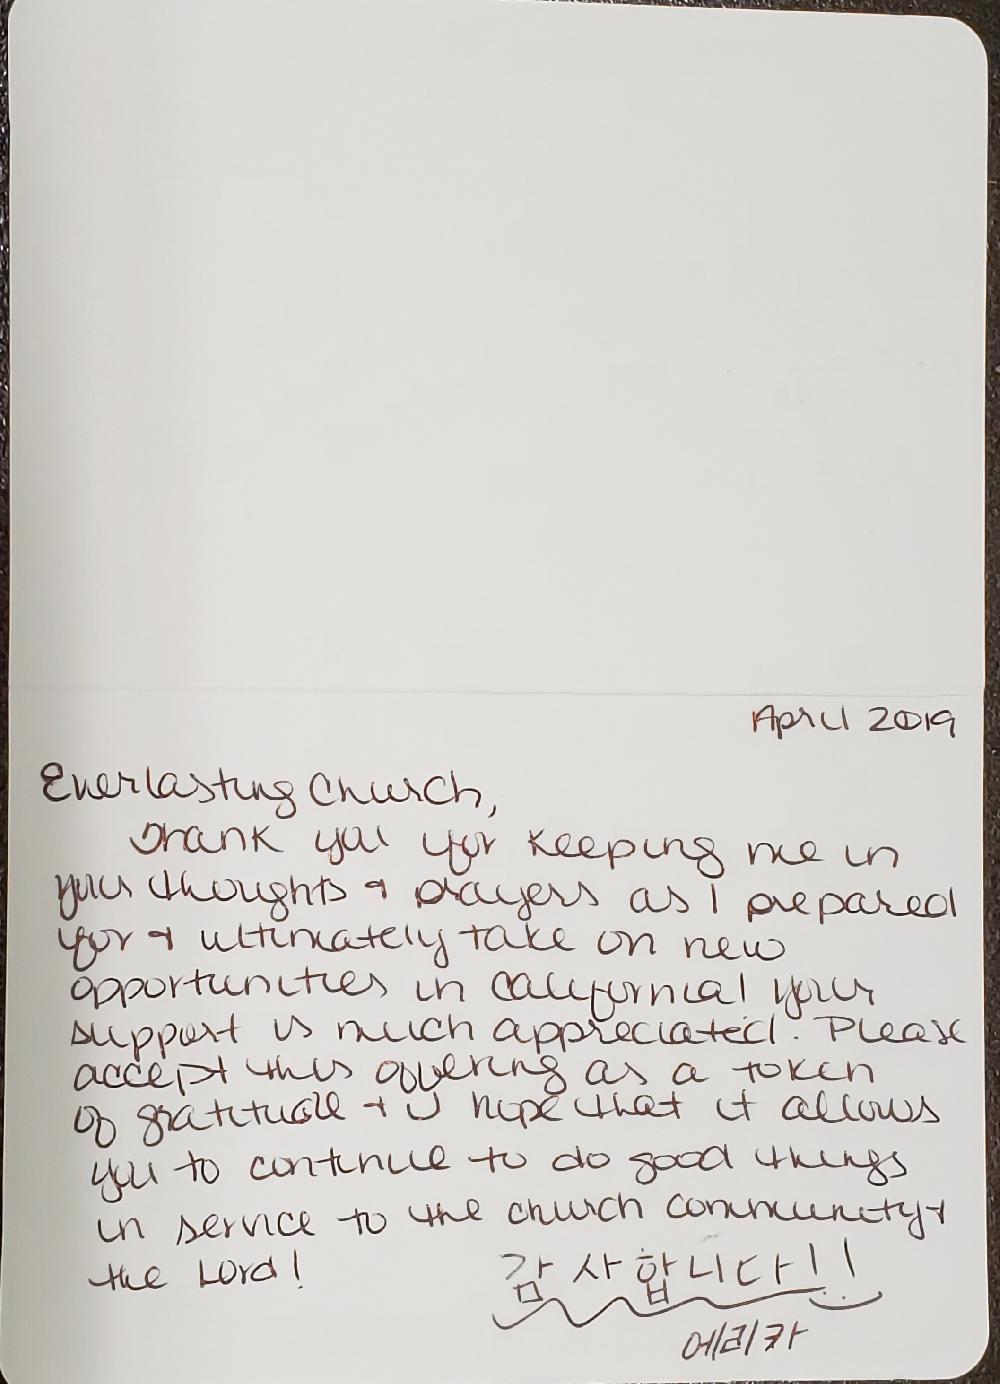 April 2019
Everlasting Church,
Thank you for keeping me in
your thoughts & prayers as I prepared
for & ultimately take on new
opportunities in California! Your
support is much appreciated. Please
accept this offering as a token
of gratitude & I hope that it allows
you to continue to do good things
in service to the church community &
the Lord!
감사합니다!!
에리카